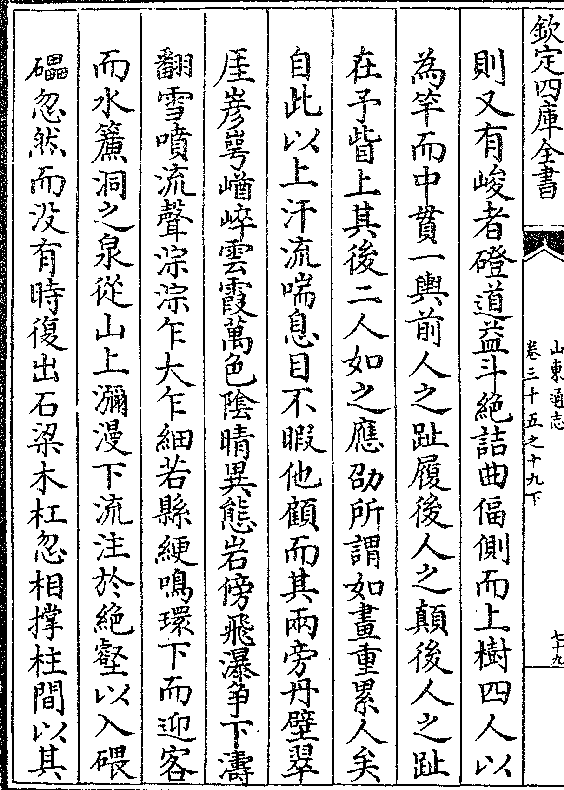 欽定四庫全書
山東通志
卷三十五之十九下
七十九
則又有峻者磴道益斗絶詰曲偪側而上樹四人以
為竿而中貫一輿前人之趾履後人之顛後人之趾
在予眥上其後二人如之應劭所謂如畫重累人矣
自此以上汗流喘息目不暇他顧而其兩旁丹壁翠
厓嵾崿崷崪雲霞萬色陰晴異態岩傍飛瀑争下濤
翻雪噴流聲淙淙乍大乍細若縣綆鳴環下而迎客
而水簾洞之泉從山上瀰漫下流注於絶壑以入碨
礧忽然而没有時復出石梁木杠忽相撑柱間以其